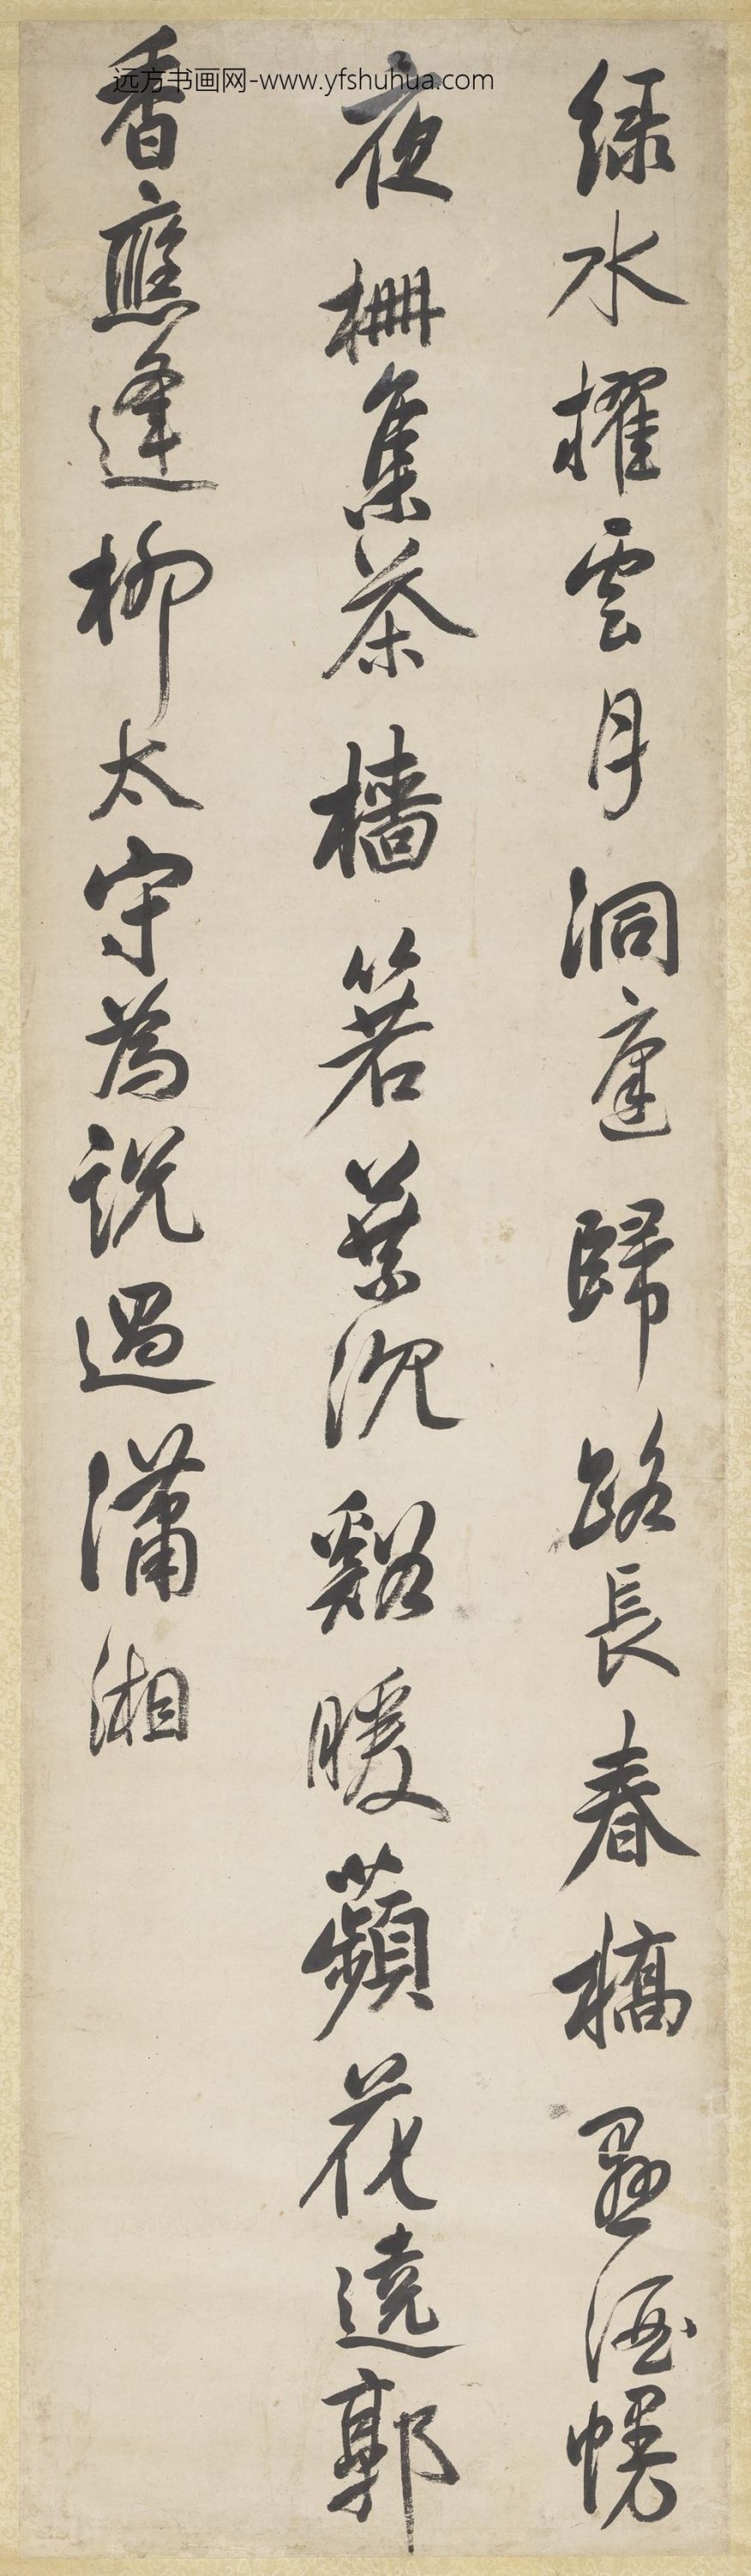 绿水擢雲月洞庭歸路長春橋懸酒幔
夜柵集茶檣箬葉沉谿暖蘋花遶郭
香應逢柳太守為說過瀟湘
远方书画网-www.yfshuhua.com